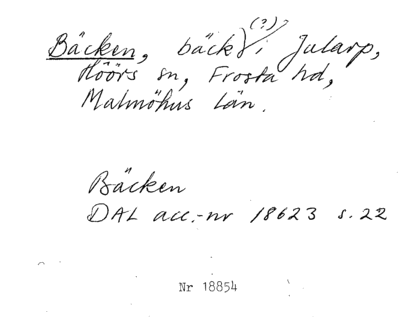 Bäcken, bäck (?) i Jularp,
Höörs sn, Frosta hd,
Malmöhus län.
Bäcken
DAL acc.-nr 18623 s. 22
Nr 18854